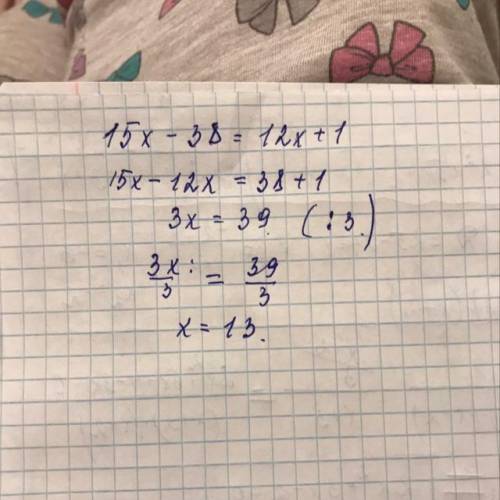 15x - 38 = 12x + 1
15x - 12x = 38 + 1
3x = 39. (:3.)
3x/3 : = 39/3
x = 13.